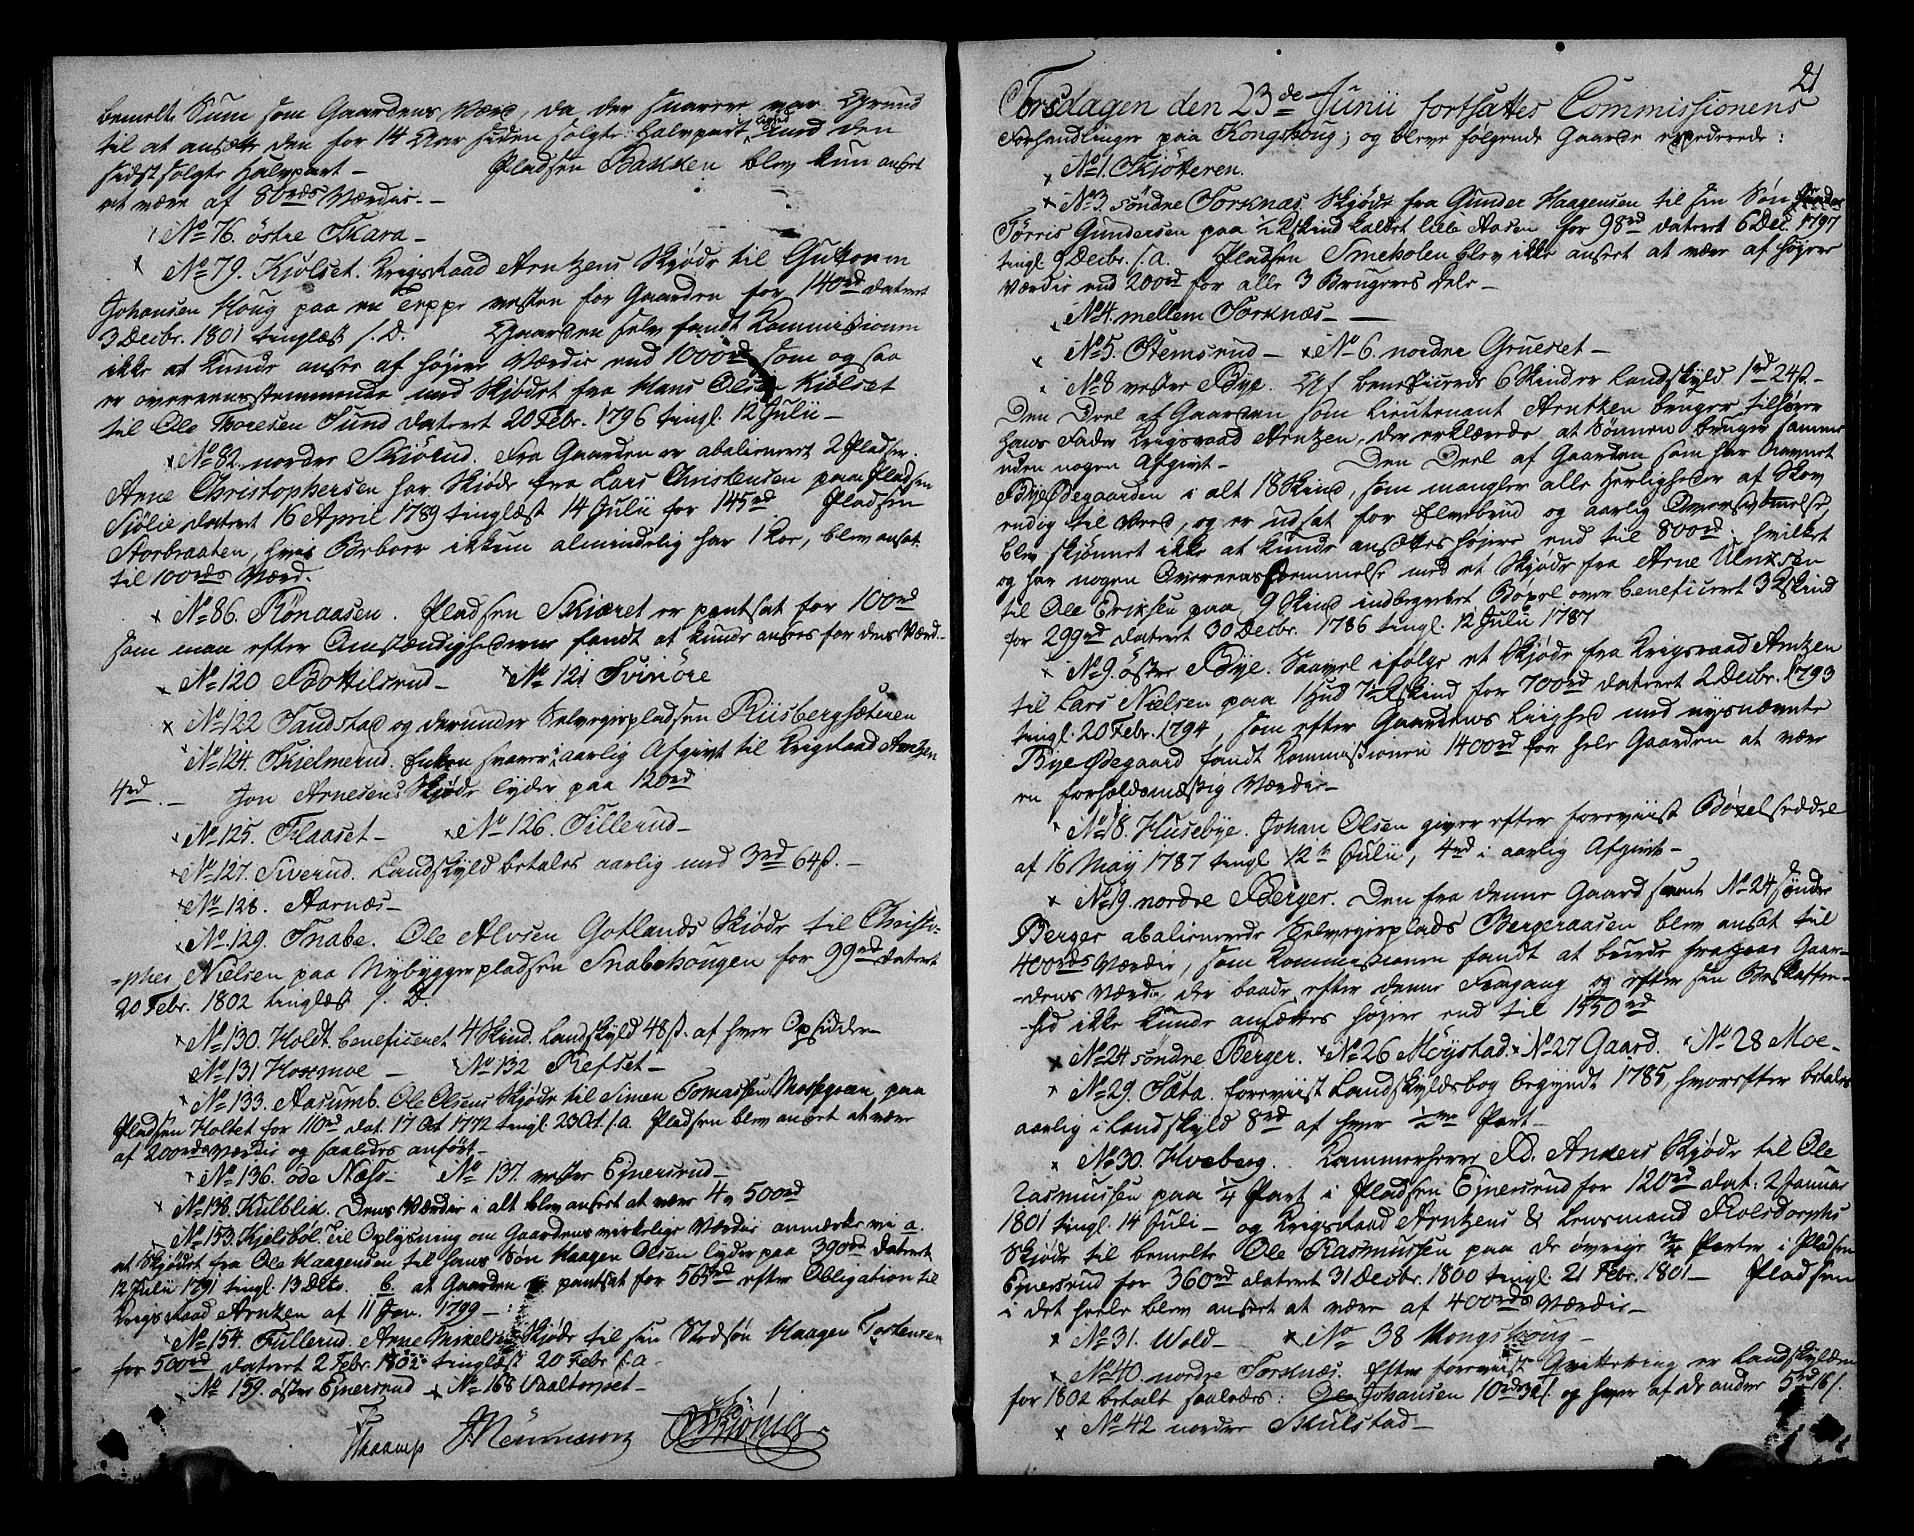 bemelte Sum som Gaardens Værd, da der snarere var Grund
til at ansætte den for 14 Aar siden solgte Halvpart lige med den
sidst solgte Halvpart — Pladsen Bakken blev kun anset
at være af 80rds Værdie. —
No 76. östre Skara —
No 79. Kjölset. Krigsraad Arntzens Skjöde til Guttorm
Johansen Houg paa en Teppe vesten for Gaarden for 140rd datert
3 Decbr. 1801 tinglæst s. D. Gaarden selv fandt Commissionen
ikke at kunde ansees af höjere Værdie end 1000rd som og saa
er overeensstemmende med Skjödet fra Hans Olsen Kiölset
til Ole Thoresen Sund datert 20 Febr. 1796 tingl. 12 Julii —
No 82. nordre Skiörud. Fra Gaarden er abalieneret 2 Pladse.
Arne Christophersen har Skjöde fra Lars Christensen paa Pladsen
Siölie datert 16 April 1789 tinglæst 14 Julii for 145rd. Pladsen
Storbraaten, hvis Beboer ikkun almindelig har 1 Koe, blev ansat
til 100rds Værd.
No 86. Rönaasen. Pladsen Skiæret er pantsat for 100rd
som maa efter Omstændighederne fandt at kunde ansees for dens Værd. —
No 120 Bottilsrud — No 121 Svinöre
No 122 Sandstad og derunder Selveyerpladsen Riisbergsæteren
No 124. Skjelmerud. Enken svarer i aarlig Afgivt til Krigsraad Arntzen
4rd. — Jon Arnesens Skjöde lyder paa 120rd
No 125. Flaaset — No 126. Sillerud —
No 127. Siverud. Landskyld betales aarlig med 3rd 64ß. —
No 128. Aarnæs —
No 129. Snabe. Ole Alvsen Gotlands Skjöde til Christo-
-pher Nielsen paa Nybyggerpladsen Snabehougen for 99rd datert
20 Febr. 1802 tinglæst s. D.
No 130. Holdt. beneficeret 4 Skind. Landskyld 48ß. af hver Opsidder
No 131 Hoxmoe — No 132 Refset —
No 133. Aasumb. Ole Olsens Skjöde til Simen Tomassen Mossegraan paa
Pladsen Holtet for 110rd dat. 17 Oct 1772 tingl. 23 Oct. s. a. Pladsen blev anseet at være
af 200rds Værdie og saaledes anfört —
No 136. öde Næss — No 137. vestre Ejnersrud —
No 138. Kulblik. Dens Værdie i alt blev anseet at være 4 500rd
No 153. Kjelsböl. Til Oplysning om Gaardens virkelige Værdie anmærke vi a.
at Skjödet fra Ole Haagensen til hans Sön Haagen Olsen lyder paa 390rd datert
12 Julii 1791 tingl. 13 Dito. b. at Gaarden er pantsat for 565rd efter Obligation til
Krigsraad Arntzen af 11 Jan. 1799 —
No 154. Fullerud. Arne Mikelsens Skjöde til sin Stedsön Haagen Torkensen
for 500rd datert 2 Febr. 1802 tinglæst 20 Febr s. a —
No 159. östre Ejnersrud No 168 Vaaltorpet —
Haaarup JNeumann König
21
Torsdagen den 23de Junii fortsattes Commissionens
Forhandlinger paa Kongsboug; og bleve fölgende Gaarde expederede:
No 1. Skjötteren.
No 3. söndre Torknæs. Skjöde fra Gunder Haagensen til sin Sön
Törris Gundersen paa ½ Skind kaldet lille Aasen for 98rd datert 6 Dec. 1797
tingl 9 Decbr. s. a. Pladsen Smeholen blev ikke anseet at være af höjere
Værdie end 200rd for alle 3 Brugeres Dele —
No 4. mellem Torknæs —
No 5. Stemsrud — No 6. nordre Grueset —
No 8 vestre Bye. Af beneficerede 6 Skind er Landskyld 1rd 24ß. —
Den Deel af Gaarden som Lieutenant Arntzen bruger tilhörer
hans Fader Krigsraad Arntzen, der erklærede at Sönnen bruger samme
uden nogen Afgivt — Den Deel af Gaarden som har Navnet
Bye Ödegaarden i alt 18 Skind, som mangler alle Herligheder af Skov
endog til Brænd, og er udsat for Elvebrud og aarlig Oversvömmelse,
blev skjönnet ikke at kunde ansættes höjere end til 800rd. hvilket
og har nogen Overeensstemmelse med et Skjöde fra Arne Ulriksen
til Ole Eriksen paa 9 Skind indbegrebet Böxel over beneficeret 3 Skind
for 299rd datert 30 Decbr. 1786 tingl. 12 Julii 1787
No 9. östre Bye. Saavel ifölge et Skjöde fra Krigsraad Arntzen
til Lars Nielsen paa 1 Hud 7½ Skind for 700rd datert 2 Decbr. 1793
tingl. 20 Febr. 1794, som efter Gaardens Liighed med nysnævnte
Bye Ödegaard fandt Commissionen 1400rd for hele Gaarden at være
en forholdsmæssig Værdie —
No 18. Husebye. Johan Olsen giver efter foreviist Böxelseddel
af 16 May 1787 tingl 12te Julii, 4rd i aarlig Afgivt —
No 19. nordre Berger. Den fra denne Gaard samt No 24 söndre
Berger abalienerede Selveyerplads Bergeraasen blev ansat til
400rds Værdie, som Commissionen fandt at burde fragaae Gaar-
-dens Værdie, der baade efter denne Fragang og efter sin Beskaffen-
-hed ikke kunde ansættes höjere end til 1550rd
No 24 söndre Berger. No 26 Möystad. No 27 Gaard. No 28 Moe —
No 29. Sæta. foreviist Landskyldsbog begyndt 1785, hvorefter betales
aarlig i Landskyld 8rd af hver ½ve Part —
No 30. Hveberg. Kammerherre P. Ankers Skjöde til Ole
Rasmussen paa ¼ Part i Pladsen Ejnersrud for 120rd dat: 2 Januar
1801 tingl. 14 Juli — og Krigsraad Arntzens & Lensmand Rolsdorphs
Skjöde til bemelte Ole Rasmussen paa de övrige ¾ Parter i Pladsen
Ejnersrud for 360rd datert 31 Decbr. 1800 tingl. 21 Febr. 1801 — Pladsen
i det heele blev anseet at være af 400rds Værdie —
No 31. Wold — No 38 Kongsboug —
No 40. nordre Torknæs. Efter foreviist Qvittering er Landskylden
for 1802 betalt saaledes: Ole Johansen 10rd 32ß. og hver af de andre 5rd 16ß.
No 42 nordre Skulstad —